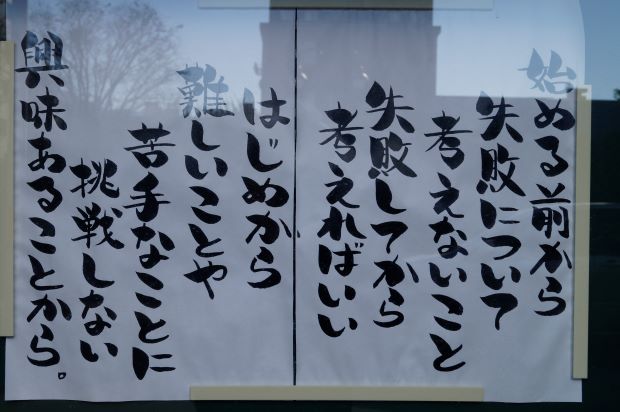 始める前から
失敗について
考えないこと
失敗してから
考えればいい
はじめから
難しいことや
苦手なことに
挑戦しない
興味あることから。